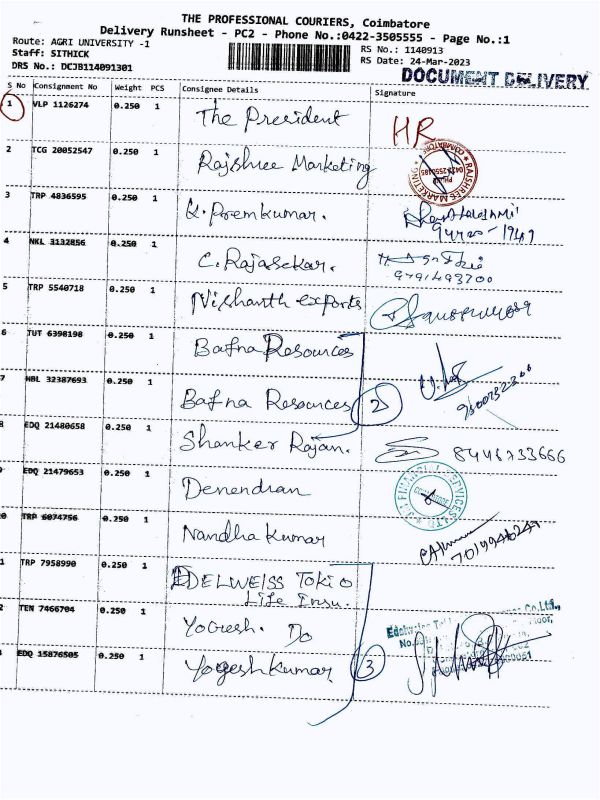 THE PROFESSIONAL COURIERS, Coimbatore
Delivery Runsheet - PC2 - Phone No.:0422-3505555 - Page No.:1
Route: AGRI UNIVERSITY -1
Staff: SITHICK
DRS No.: DCJB114091301
RS No.: 1140913
RS Date: 24-Mar-2023
DOCUMENT DELIVERY
S No Consignment No Weight PCS Consignee Details Signature
1 VLP 1126274 0.250 1 The President HR
2 TCG 20052547 0.250 1 Rajshree Marketing
RAJSHREE MARKETING COIMBATORE
3 TRP 4836595 0.250 1 K. Premkumar.
4 NKL 3132856 0.250 1 C. Rajasekar.
9791493200
5 TRP 5540718 0.250 1 Nishanth exports
6 TUT 6398198 0.250 1 Bafna Resources
7 HBL 32387693 0.250 1 Bafna Resources 2
8 EDQ 21480658 0.250 1 Shanker Rajan. 8446733666
9 EDQ 21479653 0.250 1 Denendran
FINANCIAL SERVICES LTD
0 TRP 6074756 0.250 1 Nandha Kumar
1 TRP 7958990 0.250 1 EDELWEISS TOKIO
Life Insu.
2 TEN 7466704 0.250 1 Yogesh. Do
EDQ 15876505 0.250 1 Yogeshkumar 3